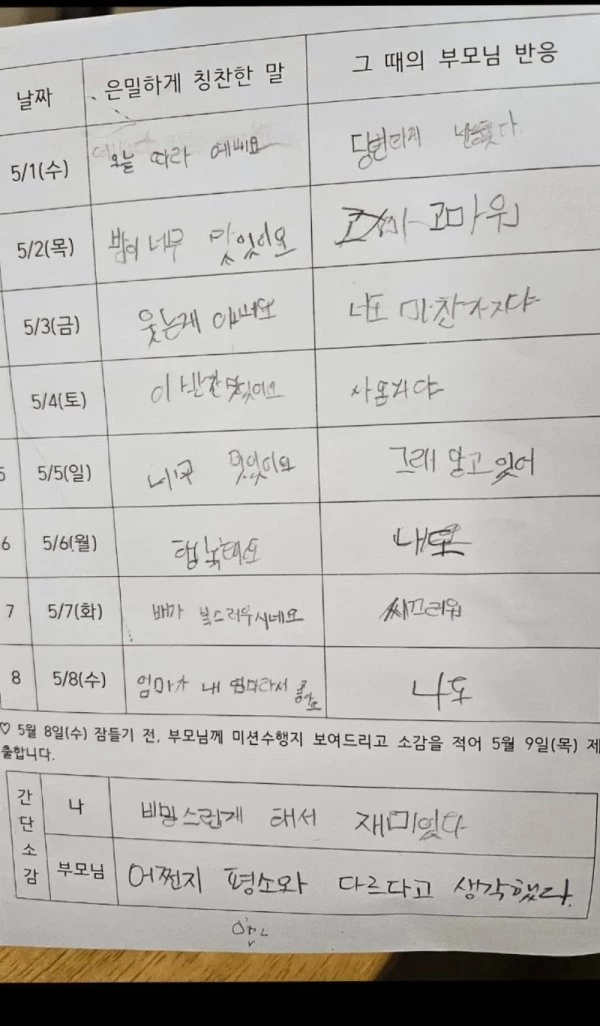 날짜 은밀하게 칭찬한 말 그 때의 부모님 반응
5/1(수) 오늘 따라 예뻐요 당번하게
5/2(목) 밥이 너무 맛있어요 고마워
5/3(금) 웃는게 너도 마찬가지야
5/4(토) 이
5/5(일) 너무 멋있어요 그래 알고 있어
6 5/6(월) 행복해요 내도
7 5/7(화) 배가 복스러우시네요 씨끄러워
8 5/8(수) 엄마가 내 엄마라서 나도
♡ 5월 8일(수) 잠들기 전, 부모님께 미션수행지 보여드리고 소감을 적어 5월 9일(목) 제
출합니다.
간단소감
나 비밀스럽게 해서 재미있다
부모님 어쩐지 평소와 다르다고 생각했다.